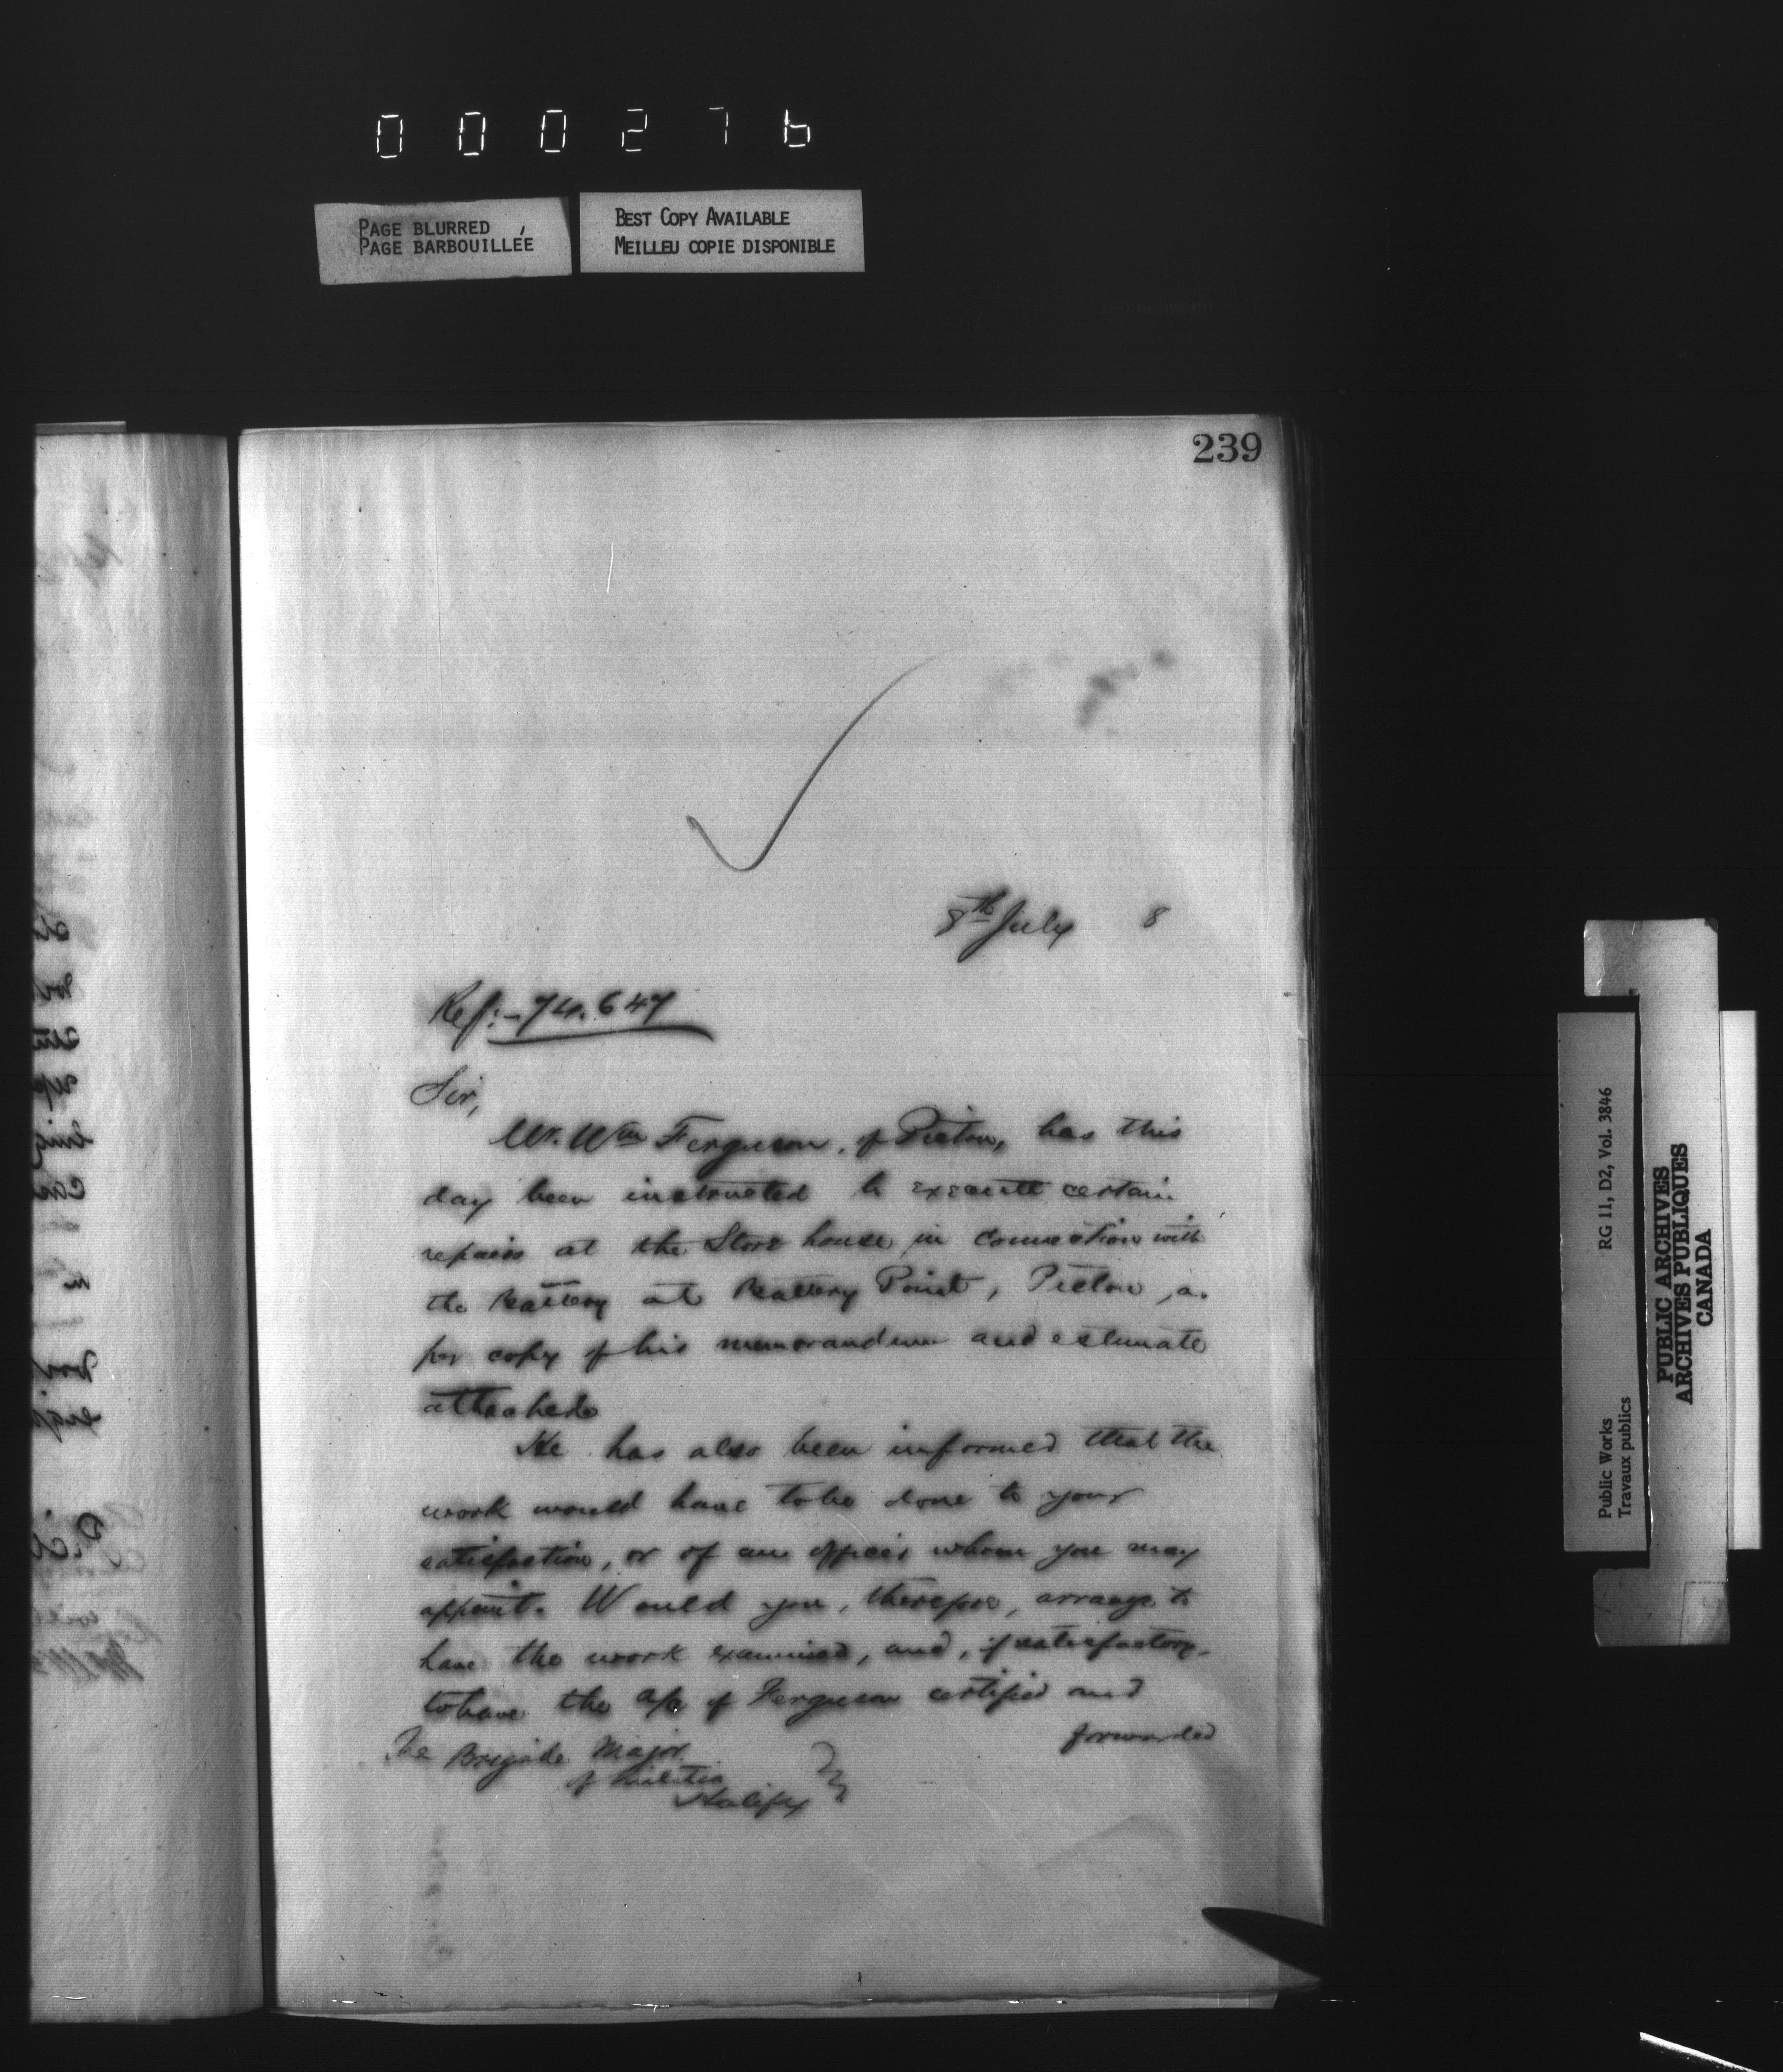 000276
PAGE BLURRED
PAGE BARBOUILLÉE
BEST COPY AVAILABLE
MEILLEU COPIE DISPONIBLE
239
8th July 8
Ref:- 74.647
Sir,
Mr. Wm Ferguson, of Pictou, has this
day been instructed to execute certain
repairs at the Store house in connection with
the Battery at Battery Point, Pictou, as
per copy of his memorandum and estimate
attached
He has also been informed that the
work would have to be done to your
satisfaction, or of an officer whom you may
appoint. Would you, therefore, arrange to
have the work examined, and, if satisfactory
to have the a/c of Ferguson certified and
forwarded
The Brigade Major
of Militia
Halifax
Public Works RG 11, D2, Vol. 3846
Travaux publics
PUBLIC ARCHIVES
ARCHIVES PUBLIQUES
CANADA